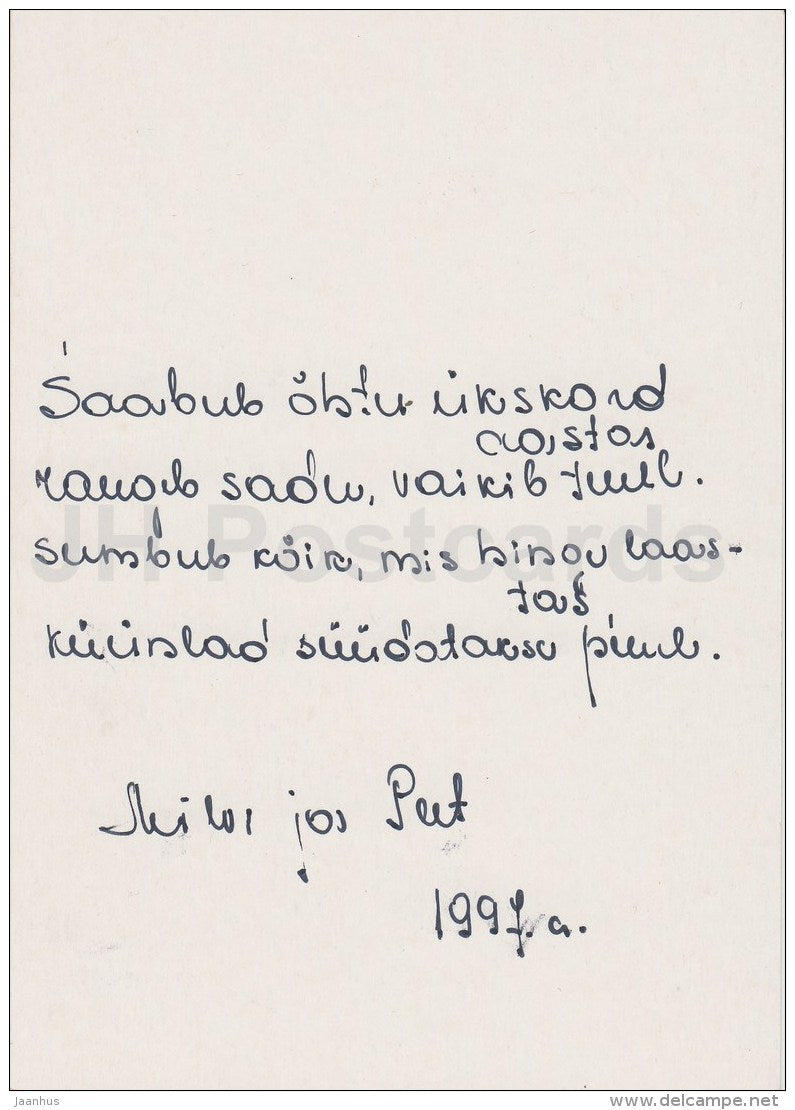 Saabub õhtu ükskord
aastas
raugeb sadu, vaikib tuul.
sumbub kõik, mis hinge laas-
tas
küünlad süüdatakse puul.
Milvi ja Peet
1997. a.
JH Postcards
Jaanhus
delcampe.net